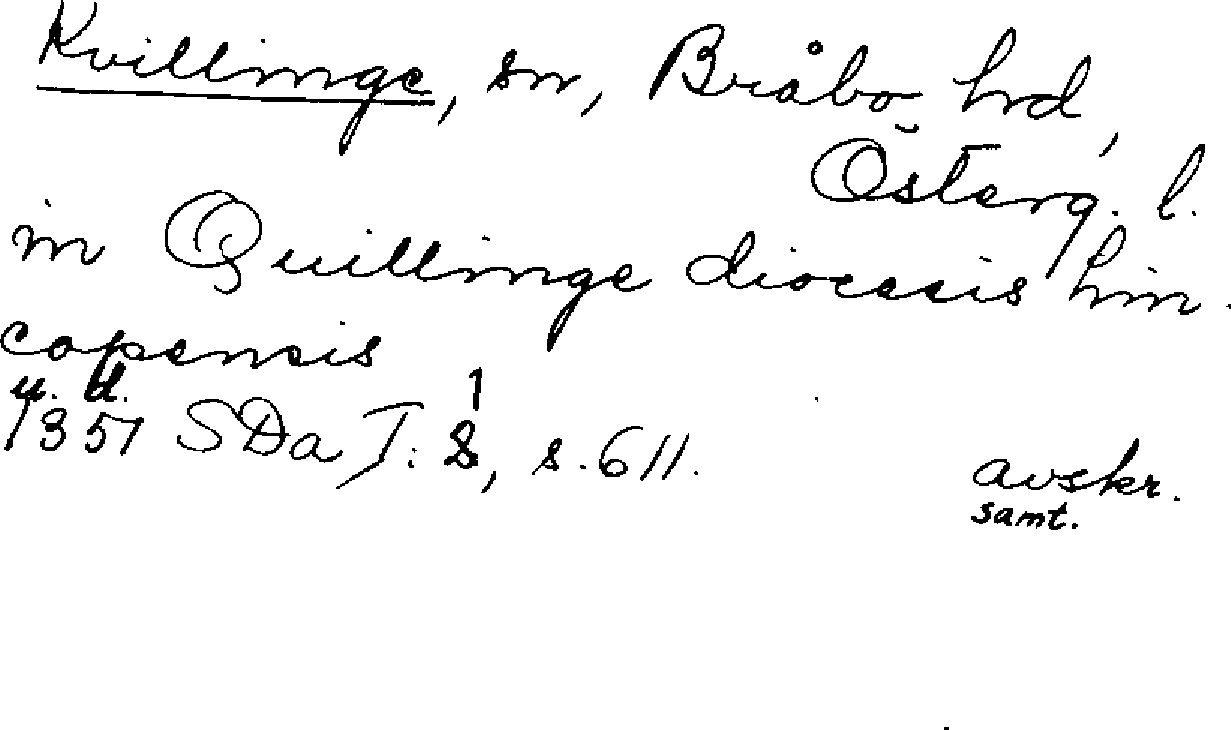 Kvillinge, sn, Bråbo hrd,
Österg. l.
in Quillinge diocesis lin-
copensis
u. d.
1351 SDa I: 1, s. 611.
avskr.
samt.